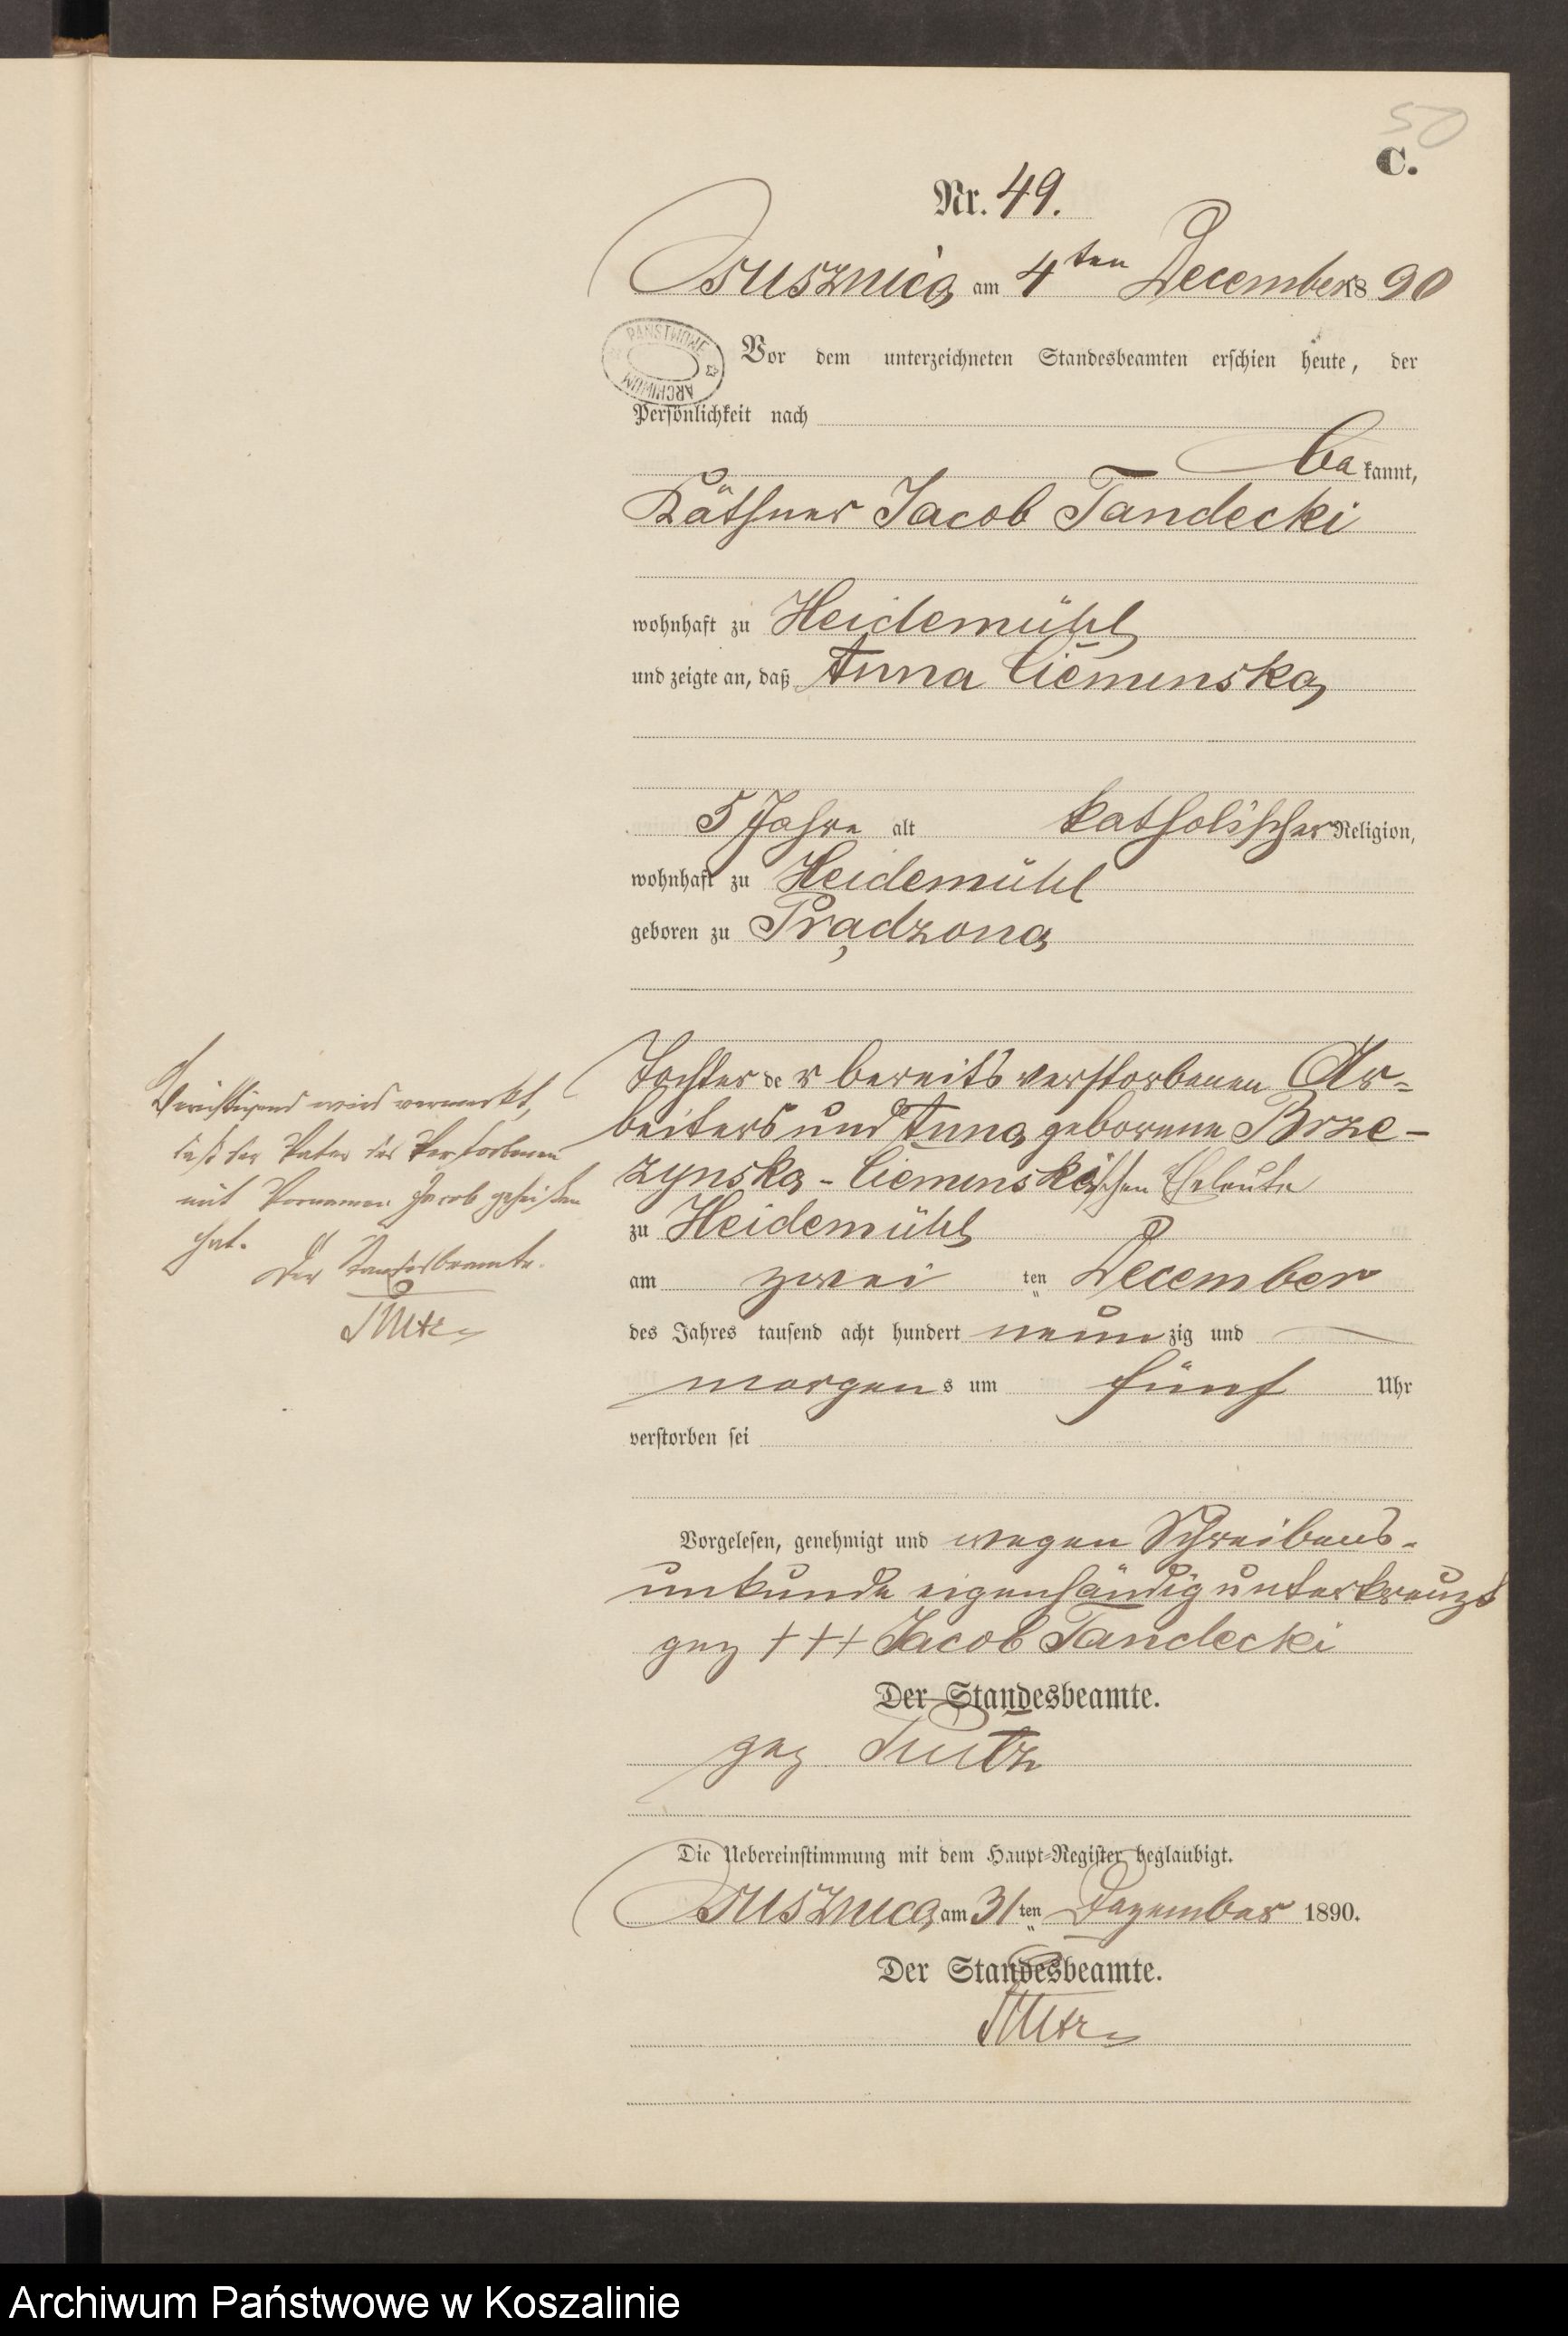 50
C.
Nr. 49.
Osusznica am 4ten December 1890
PAŃSTWOWE
ARCHIWUM
Vor dem unterzeichneten Standesbeamten erschien heute, der
Persönlichkeit nach
bekannt,
Käthner Jacob Tandecki
wohnhaft zu Heidemühl
und zeigte an, daß Anna Cieminska
5 Jahre alt katholischer Religion,
wohnhaft zu Heidemühl
geboren zu Prądzona
Tochter der bereits verstorbenen Ar-
beiters und Anna geborene Brze-
zynska - Cieminski'schen Eheleute
zu Heidemühl
am zwei ten December
des Jahres tausend acht hundert neunzig und
morgens um fünf Uhr
verstorben sei
Berichtigend wird vermerkt,
daß der Vater der Verstorbenen
mit Vornamen Jacob geheißen
hat.
Der Standesbeamte.
Vorgelesen, genehmigt und wegen Schreibens-
unkunde eigenhändig unterkreuzt
gez +++ Jacob Tandecki
Der Standesbeamte.
gez.
Die Uebereinstimmung mit dem Haupt-Register beglaubigt.
Osusznica am 31ten Dezember 1890.
Der Standesbeamte.
Archiwum Państwowe w Koszalinie